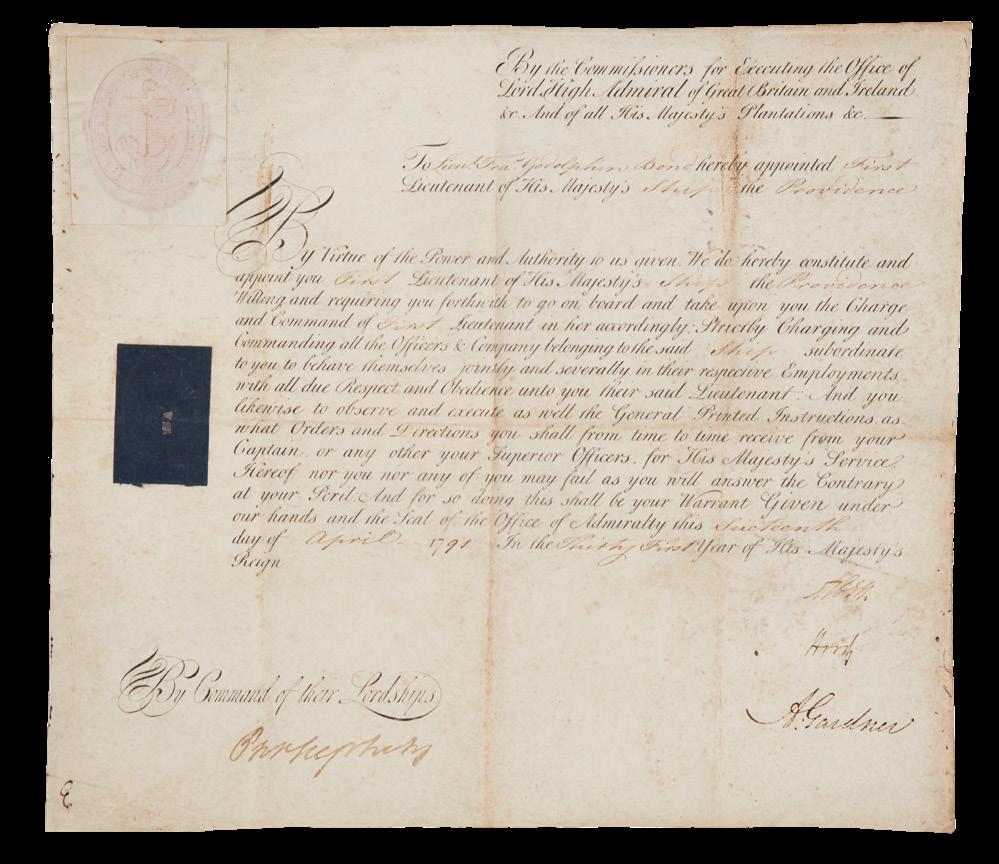 By the Commissioners for Executing the Office of
Lord High Admiral of Great Britain and Ireland
&c. And of all His Majesty's Plantations &c.
To Lieut. Fra. Godolphin Bond hereby appointed First
Lieutenant of His Majesty's Ship the Providence
By Virtue of the Power and Authority to us given We do hereby constitute and
appoint you First Lieutenant of His Majesty's Ship the Providence
Willing and requiring you forthwith to go on board and take upon you the Charge
and Command of First Lieutenant in her accordingly; Strictly Charging and
Commanding all the Officers & Company belonging to the said Ship subordinate
to you to behave themselves jointly and severally in their respective Employments
with all due Respect and Obedience unto you their said Lieutenant: And you
likewise to observe and execute as well the General Printed Instructions as
what Orders and Directions you shall from time to time receive from your
Captain, or any other your Superior Officers for His Majesty's Service.
Hereof nor you nor any of you may fail as you will answer the Contrary
at your Peril. And for so doing this shall be your Warrant Given under
our hands and the Seal of the Office of Admiralty this Sixteenth
day of April 1791 In the Thirty First Year of His Majesty's
Reign
Hood
A. Gardner
By Command of their Lordships